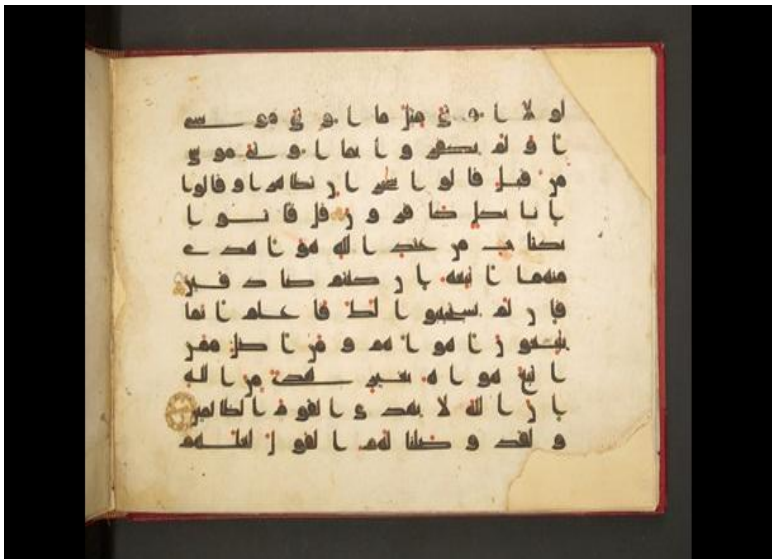 لولا اوتى مثل ما اوتى موسى
اولم يكفروا بما اوتى موسى
من قبل قالوا سحرن تظهرا وقالوا
انا بكل كفرون قل فاتوا
بكتب من عند الله هو اهدى
منهما اتبعه ان كنتم صدقين
فان لم يستجيبوا لك فاعلم انما
يتبعون اهواهم ومن اضل ممن
اتبع هواه بغير هدى من الله
ان الله لا يهدى القوم الظلمين
ولقد وصلنا لهم القول لعلهم